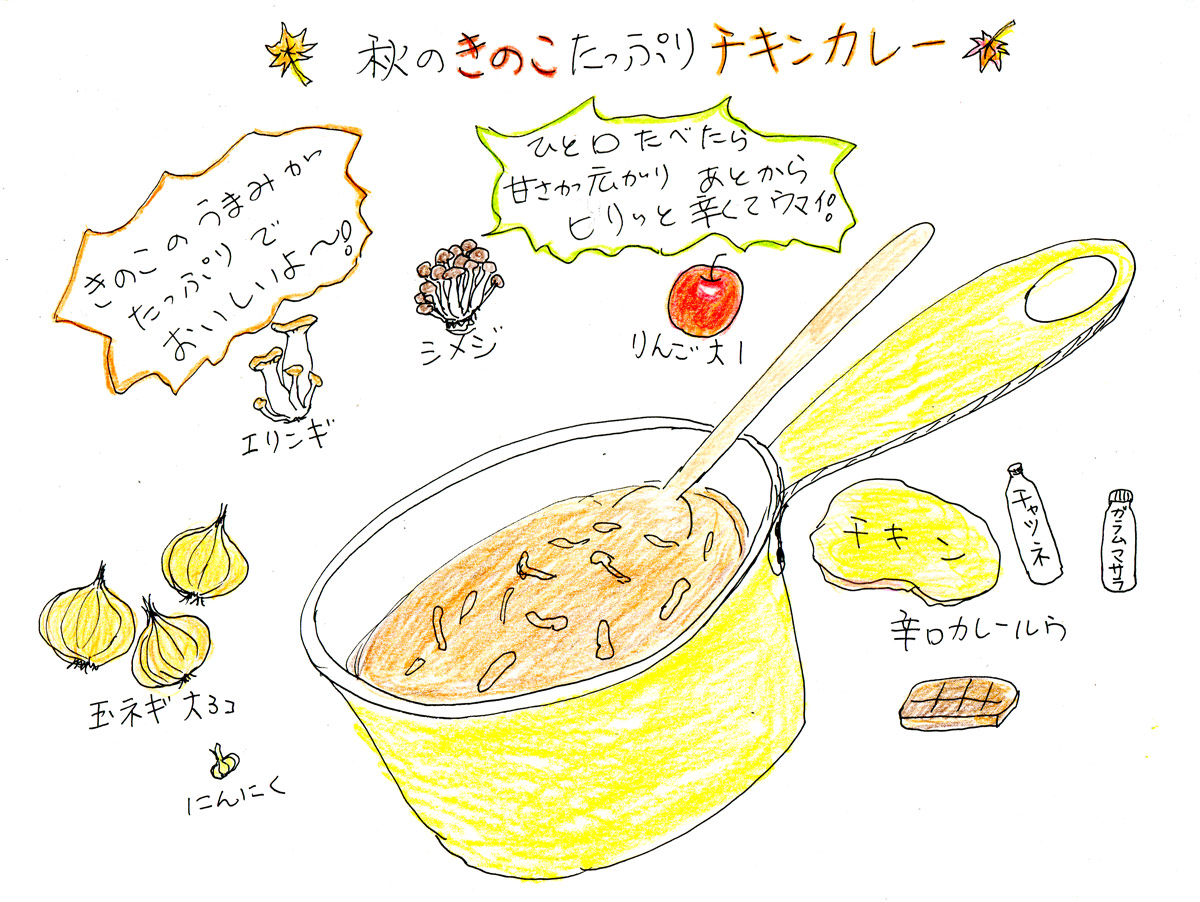 秋のきのこたっぷりチキンカレー
きのこのうまみが
たっぷりで
おいしいよ〜!
ひと口たべたら
甘さが広がり あとから
ピリッと辛くてウマイ!
シメジ
りんご大1
エリンギ
チキン
チャツネ
ガラムマサラ
辛口カレールウ
玉ネギ大3コ
にんにく